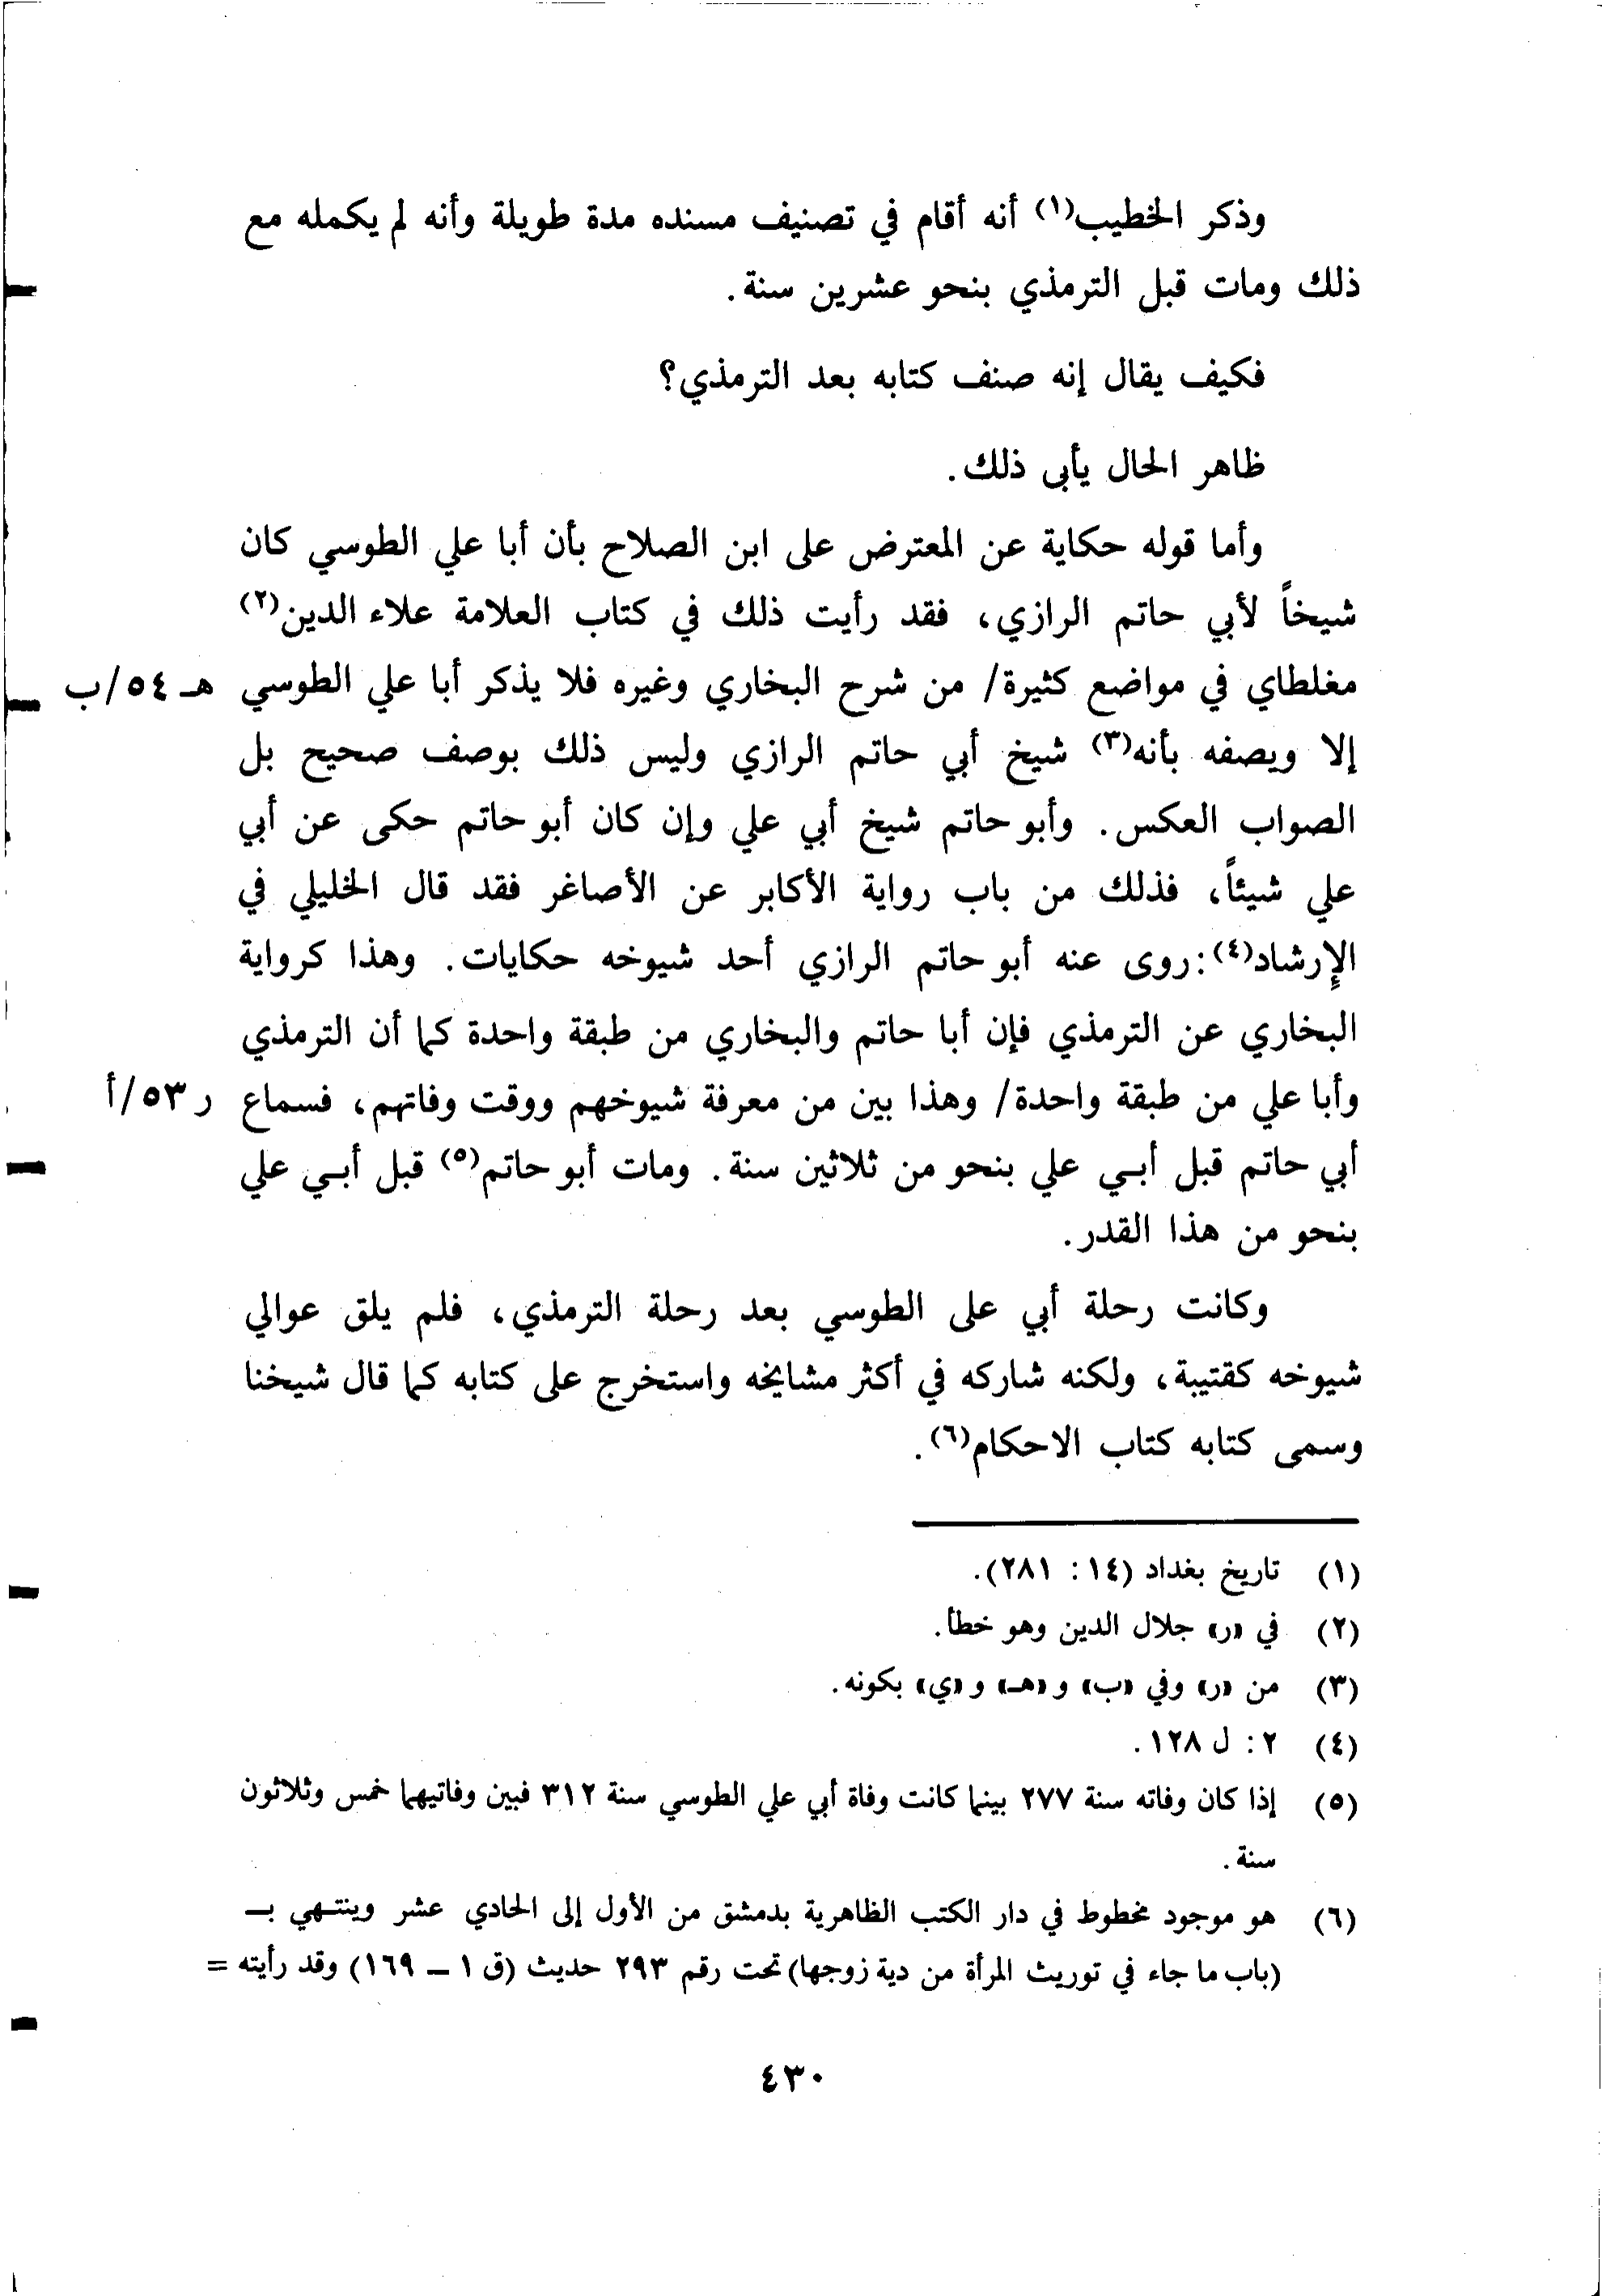 وذكر الخطيب(١) أنه أقام في تصنيف مسنده مدة طويلة وأنه لم يكمله مع
ذلك ومات قبل الترمذي بنحو عشرين سنة.
فكيف يقال إنه صنف كتابه بعد الترمذي؟
ظاهر الحال يأبى ذلك.
وأما قوله حكاية عن المعترض على ابن الصلاح بأن أبا علي الطوسي كان
شيخاً لأبي حاتم الرازي، فقد رأيت ذلك في كتاب العلامة علاء الدين(٢)
مغلطاي في مواضع كثيرة/ من شرح البخاري وغيره فلا يذكر أبا علي الطوسي هـ ٥٤/ب
إلا ويصفه بأنه(٣) شيخ أبي حاتم الرازي وليس ذلك بوصف صحيح بل
الصواب العكس. وأبو حاتم شيخ أبي علي وإن كان أبو حاتم حكى عن أبي
علي شيئاً، فذلك من باب رواية الأكابر عن الأصاغر فقد قال الخليلي في
الإرشاد(٤): روى عنه أبو حاتم الرازي أحد شيوخه حكايات. وهذا كرواية
البخاري عن الترمذي فإن أبا حاتم والبخاري من طبقة واحدة كما أن الترمذي
وأبا علي من طبقة واحدة/ وهذا بين من معرفة شيوخهم ووقت وفاتهم، فسماع ر ٥٣/أ
أبي حاتم قبل أبـي علي بنحو من ثلاثين سنة. ومات أبو حاتم(٥) قبل أبـي علي
بنحو من هذا القدر.
وكانت رحلة أبي على الطوسي بعد رحلة الترمذي، فلم يلق عوالي
شيوخه كقتيبة، ولكنه شاركه في أكثر مشايخه واستخرج على كتابه كما قال شيخنا
وسمى كتابه كتاب الاحكام(٦).
(١) تاريخ بغداد (١٤: ٢٨١).
(٢) في «ر» جلال الدين وهو خطأ.
(٣) من «ر» وفي «ب» و «هـ» و «ي» بكونه.
(٤) ٢: ل ١٢٨.
(٥) إذا كان وفاته سنة ٢٧٧ بينما كانت وفاة أبي علي الطوسي سنة ٣١٢ فبين وفاتيهما خمس وثلاثون
سنة.
(٦) هو موجود مخطوط في دار الكتب الظاهرية بدمشق من الأول إلى الحادي عشر وينتـهي بـ
(باب ما جاء في توريث المرأة من دية زوجها) تحت رقم ٢٩٣ حديث (ق ١ – ١٦٩) وقد رأيته =
٤٣٠